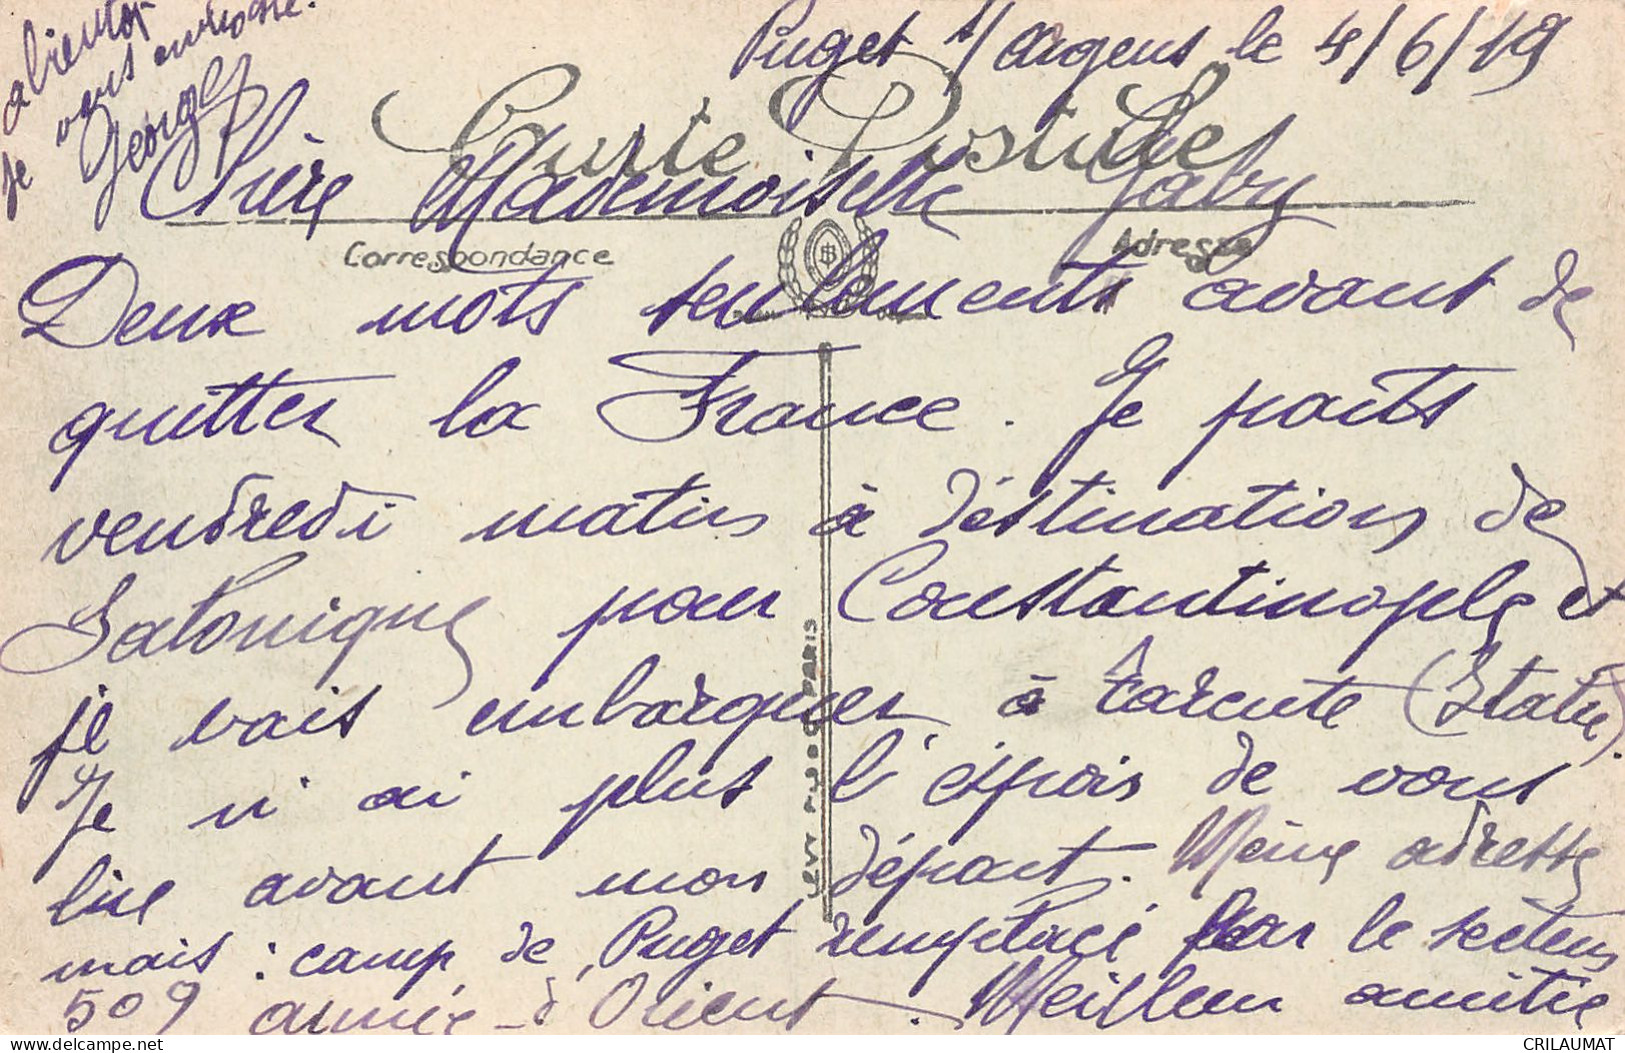 Puget s/ Argens le 4/6/19
Carte Postale
Chère Mademoiselle Gaby
Correspondance
Adresse
Deux mots seulements avant de
quitter la France. Je parts
vendredi matin à déstination de
Salonique pour Constantinople et
je vais embarquer à tarente (Italie).
Je n'ai plus l'éspois de vous
lire avant mon départ. Même adresse
mais : camp de Puget remplacé par le secteur
509 armée d'Orient. Meilleur amitié
abientot
je vous
Georges
PARIS
CRILAUMAT